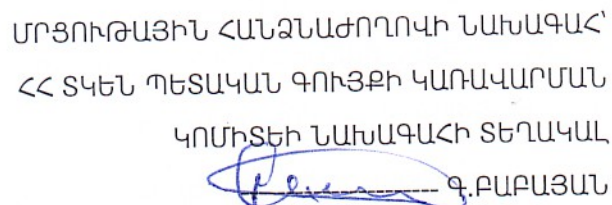 ՄՐՑՈՒԹԱՅԻՆ ՀԱՆՁՆԱԺՈՂՈՎԻ ՆԱԽԱԳԱՀ՝
ՀՀ ՏԿԵՆ ՊԵՏԱԿԱՆ ԳՈՒՅՔԻ ԿԱՌԱՎԱՐՄԱՆ
ԿՈՄԻՏԵԻ ՆԱԽԱԳԱՀԻ ՏԵՂԱԿԱԼ
Գ.ԲԱԲԱՅԱՆ